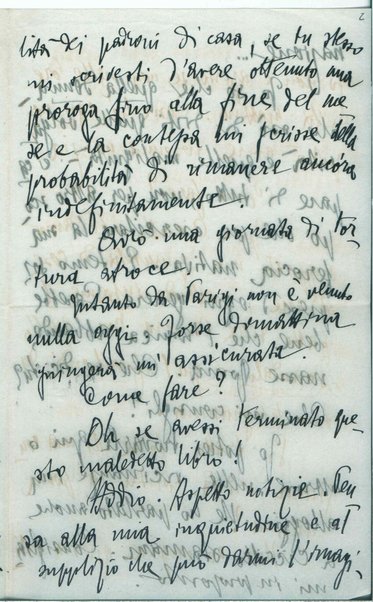 2
lità dei padroni di casa, se tu stesso
mi scrivesti d'avere ottenuto una
proroga fino alla fine del me
se e la contessa mi scrisse della
probabilità di rimanere ancora
indefinitamente.
Avrò una giornata di tor-
tura atroce.
Intanto da Parigi non è venuto
nulla oggi. Forse domattina
giungerà un'assicurata.
Come fare?
Oh se avessi terminato que-
sto maledetto libro!
Addio. Aspetto notizie. Pen
sa alla mia inquietudine e al
supplizio che può darmi l'imagi-